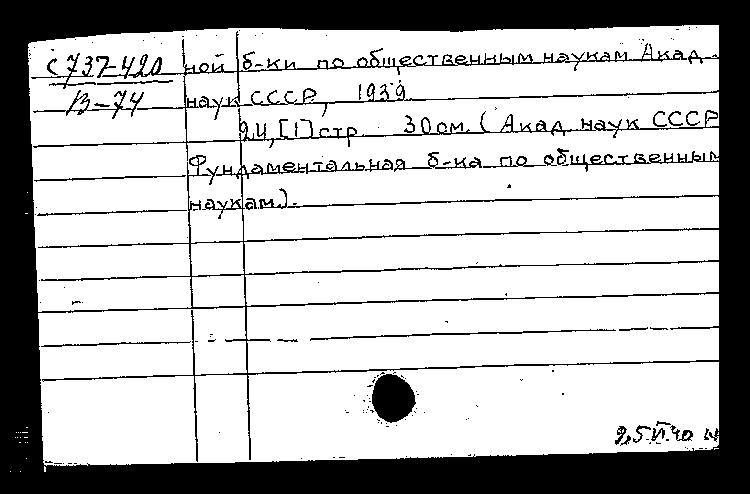 С737-420 ной б-ки по общественным наукам Акад.
В-74 наук СССР, 1939.
24, [1] стр. 30 см. (Акад. наук СССР
Фундаментальная б-ка по общественным
наукам).
25.VI.40